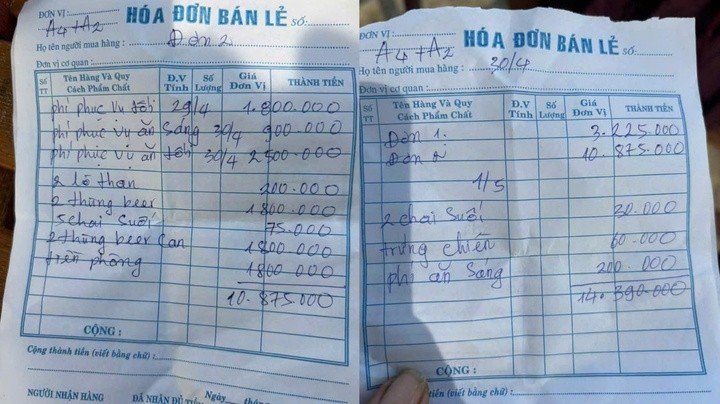 ĐƠN VỊ:
HÓA ĐƠN BÁN LẺ Số:
A4+A2
Họ tên người mua hàng : Đơn 2
Đơn vị cơ quan :
Số TT Tên Hàng Và Quy Cách Phẩm Chất Đ.V Tính Số Lượng Giá Đơn Vị THÀNH TIỀN
phí phục vụ tối 29/4 1.800.000
phí phục vụ ăn sáng 30/4 900.000
phí phục vụ ăn tối 30/4 2.500.000
2 lô than 200.000
2 thùng beer 1800.000
5 chai suối 75.000
2 thùng beer Can 1800.000
tiền phòng 1800.000
10.875.000
CỘNG :
Cộng thành tiền (viết bằng chữ) :
Ngày
NGƯỜI NHẬN HÀNG ĐÃ NHẬN ĐỦ
ĐƠN VỊ :
HÓA ĐƠN BÁN LẺ Số:
A4+A2
Họ tên người mua hàng : 30/4
Đơn vị cơ quan :
Số TT Tên Hàng Và Quy Cách Phẩm Chất Đ.V Tính Số Lượng Giá Đơn Vị THÀNH TIỀN
Đơn 1. 3.225.000
Đơn 2 10.875.000
1/5
2 chai suối 30.000
trứng chiên 60.000
phí ăn sáng 200.000
14.390.000
CỘNG :
tiền (viết bằng chữ) :